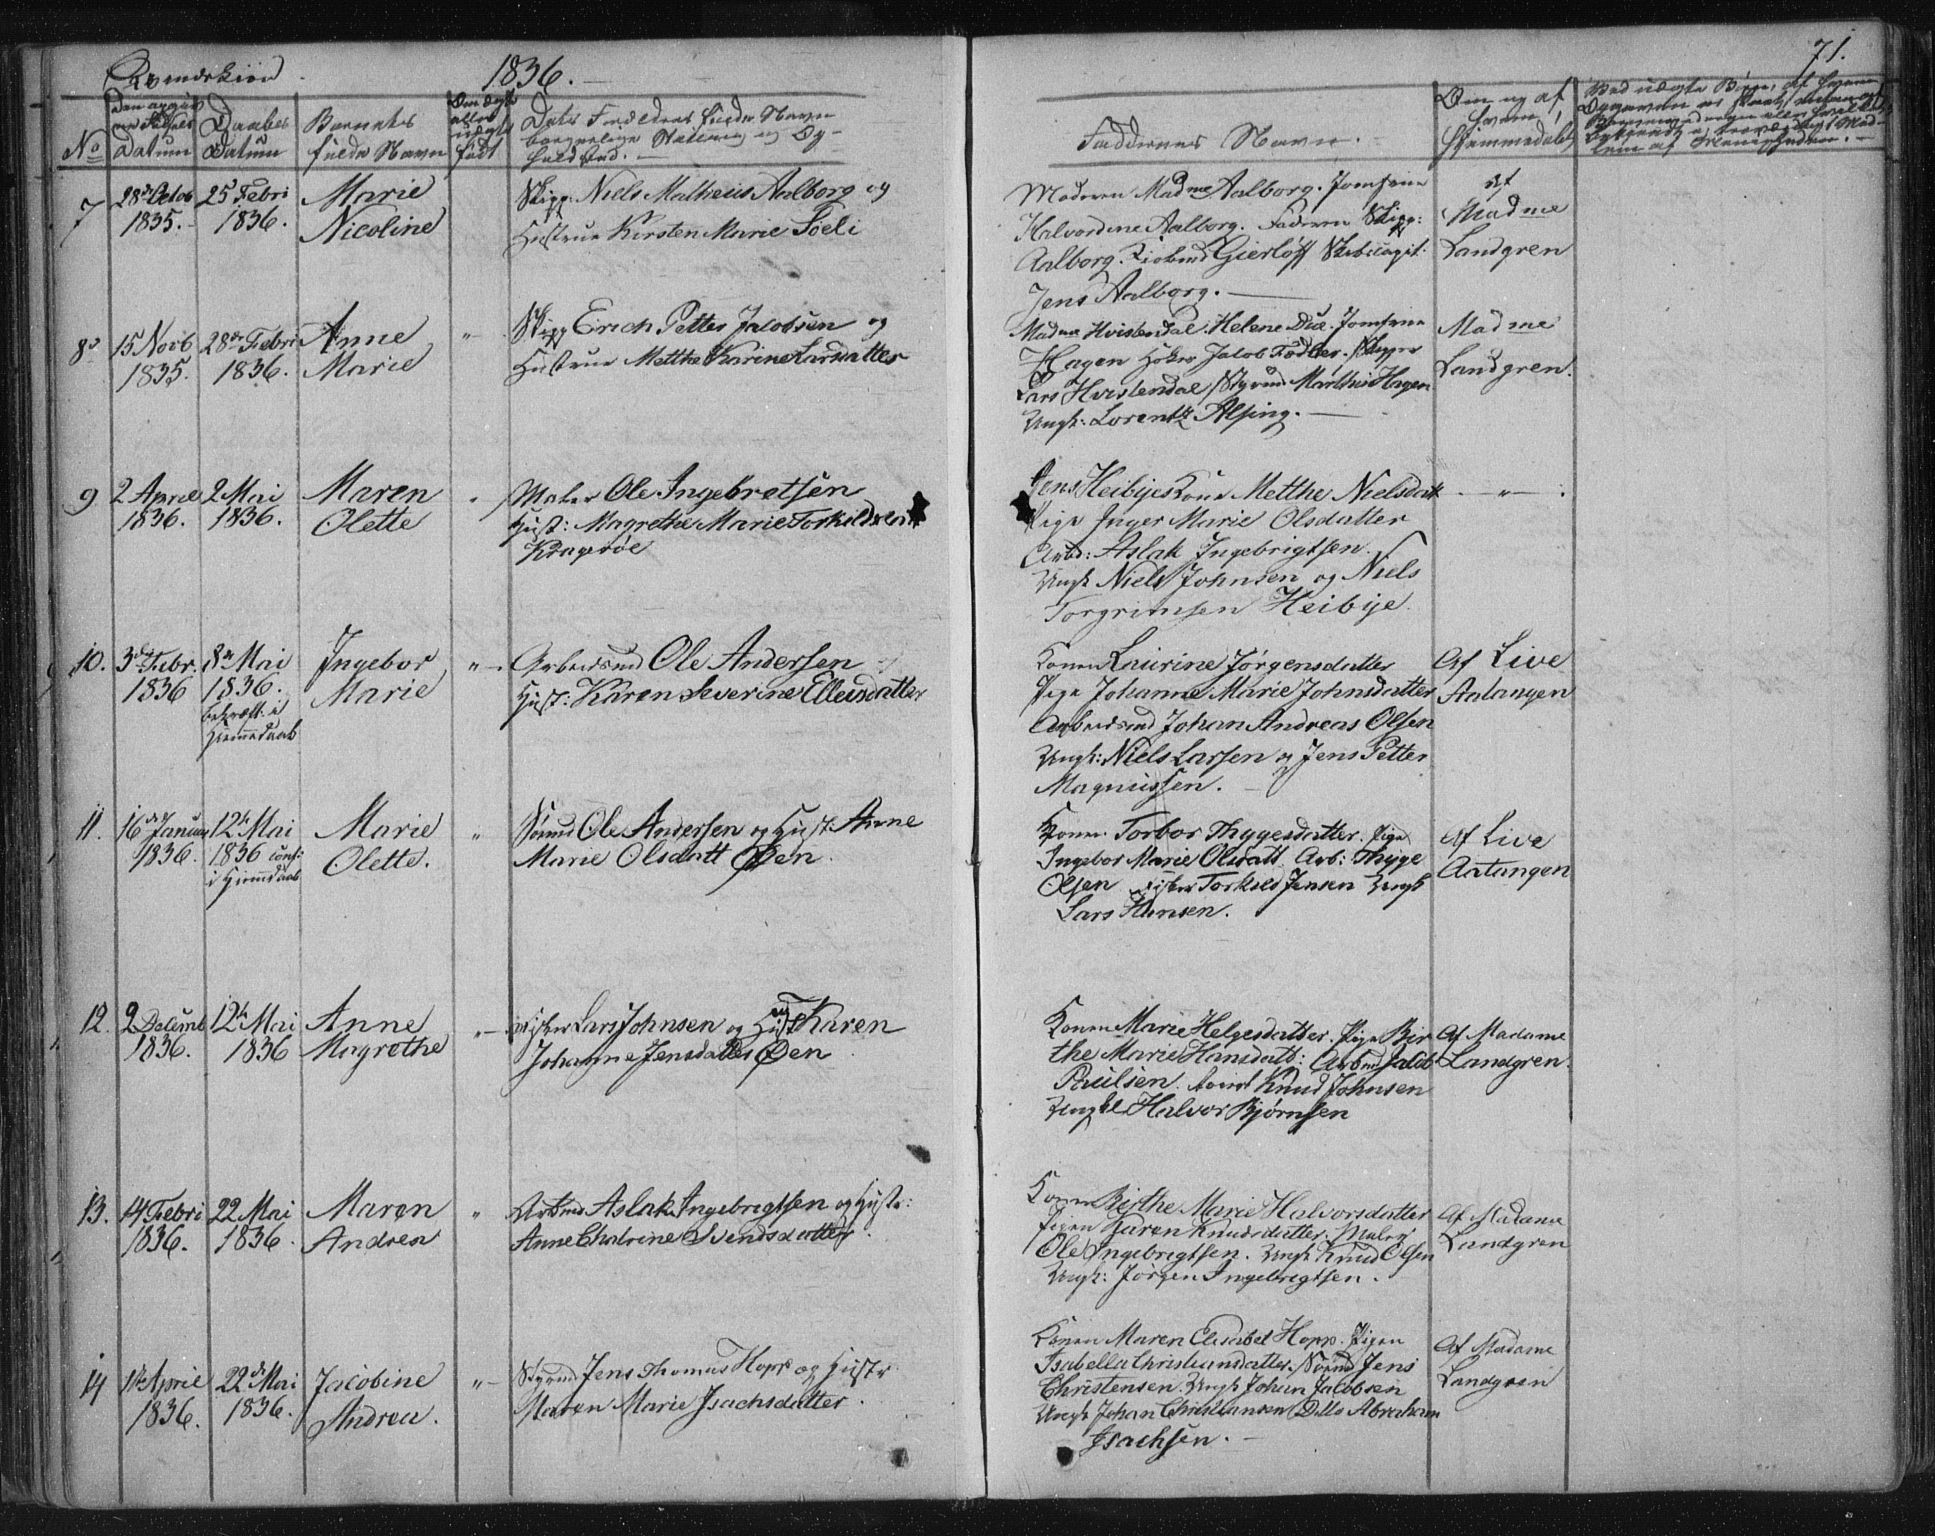 Qvindekiön 1836. 71.
No
Datum
Daabes Datum
Barnets fulde Navn
födt
Faddernes Navn.
7
28de Octob 1835.
25 Febri 1836.
Marie Nicoline
Skipp: Niels Matheus Aalborg og
Hustrue Kirsten Marie Soeli
Moderen Madme Aalborg. Jomfrue
Halvordine Aalborg. Faderen Skipp:
Aalborg. Kiøbmd Gierløff Skibscapit:
Jens Aalborg.
af
Madme
Landgren
8
15 Novb 1835.
28de Febri 1836.
Anne Marie
"
Skipp Erich Petter Jacobsen og
Hustrue Metthe Karine Larsdatter
Madme Hvistendal. Helene Due. Jomfrue
Hagen Höker Jacob Födker. Skipper
Lars Hvistendal Styrmd Marthis Hagen
Ungk: Lorentz Alping.
Madme
Landgren.
9
2 April 1836.
2 Mai 1836.
Maren Olette
"
Maler Ole Ingebretsen
Hust: Magrethe Marie Torkildsdatt
Kragerøe
Jens Heibyes Kone Metthe Nielsdatt
Pige Inger Marie Olsdatter
Arbd: Aslak Ingebrigtsen.
Ungk Niels Johnsen og Niels
Torgrimsen Heibye.
"
10.
3de Febr. 1836
8de Mai 1836.
bekræft: i
Hiemedaab
Ingebor Marie
"
Arbeidsmd Ole Andersen og
Hust: Karen Severine Ellevsdatter
Konen Laurine Jørgensdatter
Pige Johanne Marie Johnsdatter
Arbeidsmd Johan Andreas Olsen
Ungk: Niels Larsen og Jens Petter
Magnussen.
Af Live
Aatangen
11.
16de Januar 1836.
12te Mai 1836 conf:
i Hiemdaab
Marie Olette.
"
Sömd Ole Andersen og Hust: Anne
Marie Olsdatt Øen.
Konen Torbor Thygesdatter. Pige
Ingebor Marie Olsdatt. Arb: Thyge
Olsen Fisker Torkild Jensen Ungk
Lars Hansen.
Af Live
Aatangen
12.
2 Decemb 1836.
12te Mai 1836
Anne Magrethe
"
Fisker Lars Johnsen og Hust Karen
Johanne Jensdatter Øen
Konen Marie Helgesdatter. Pige Bir
the Marie Hansdatt: Arbmd Jacob
Paulsen. Knud Johnsen
Ungkl Halvor Bjørnsen
Af Madame
Landgren.
13.
14 Febri 1836.
22 Mai 1836.
Maren Andrea
"
Arbmd Aslak Ingebrigtsen og Hustr:
Anne Chatrine Svendsdatter.
Konen Birthe Marie Halvorsdatter
Pigen Karen Knudsdatter. Maler
Ole Ingebrigtsen. Ungk Knud Olsen
Ungk: Jörgen Ingebrigtsen.
Af Madame
Landgren
14
1te April 1836.
22de Mai 1836.
Jacobine Andrea.
"
Styrmd Jens Thomas Hopp og Hustr
Maren Marie Isachsdatter.
Konen Maren Elisabet Hopp. Pigen
Isabella Christiansdatter. Sömd Jens
Christensen Ungk Johan Jacobsen
Ungk Johan Christiansen Ditto Abraham
Isachsen.
Af Madame
Landgren